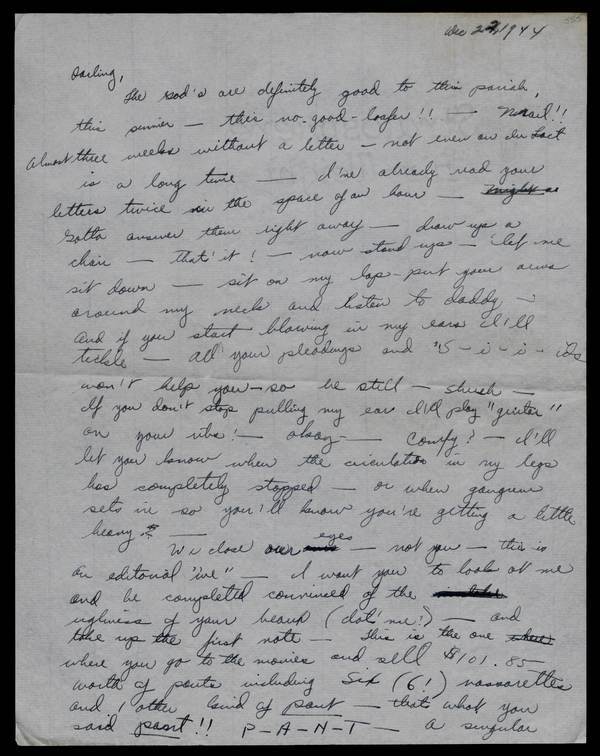 Dec 22, 1944
585
Darling,
The God's are definitely good to this pariah,
this sinner — this no-good-loafer!! — Mail!!
Almost three weeks without a letter — not even an
is a long time — I've already read your
letters twice in the space of an hour — might as
Gotta answer them right away — draw up a
chair — that's it! — now stand up — let me
sit down — sit on my lap - put your arms
around my neck and listen to daddy —
And if you start blowing in my ears I'll
tickle — all your pleadings and "S - i - i - ids
won't help you — so be still — shush —
If you don't stop pulling my ear I'll play "guitar"
on your ribs! — okay — Comfy? — I'll
let you know when the circulation in my legs
has completely stopped — or when gangrene
sets in so you'll know you're getting a little
heavy —
We close our eyes — not you — this is
an editorial "we" — I want you to look at me
and be completely convinced of the
ugliness of your beaux (dat' me!) — and
take up the first note — This is the one
where you go to the movies and sell $101.85
worth of pants including Six (6!) vassarettes
and 1 other kind of pant — that's what you
said pant!! P-A-N-T — a singular